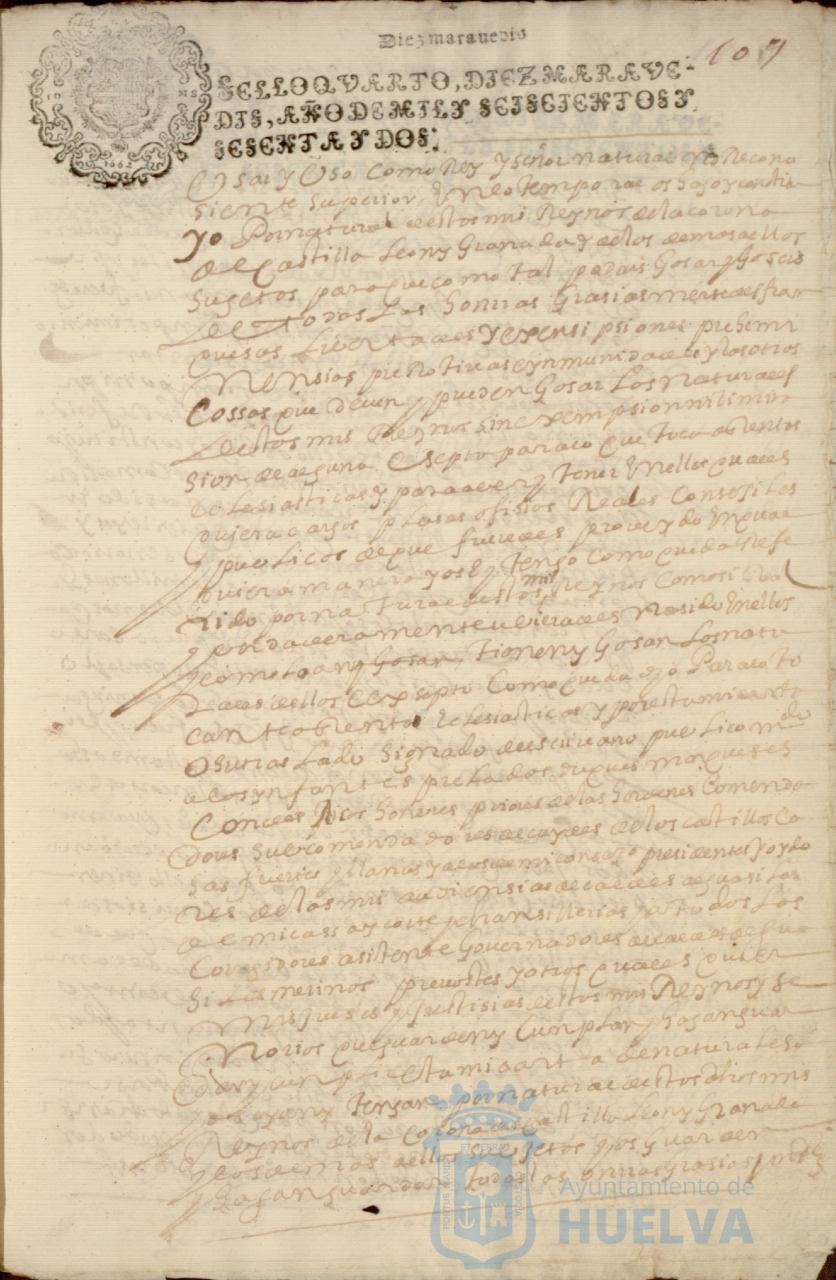 Diez maravedis
107
SELLO QVARTO, DIEZ MARAVE-
DIS, AÑO DE MIL Y SEISCIENTOS Y
SESENTA Y DOS.
1662
Usar y Uso como Rey y señor natural no Recono
siente superior temporal os Hago y constitu
yo Por natural destos mis Reynos de la corona
de Castilla Leon y Granada y de los demas a ellos
sugetos para que como tal podais Gosar y Goseis
de todas Las Honrras Grasias mersedes fran
quesas Livertades y exensipsiones prehemi
nensias prerrotivas e ynmunidades y las otras
cossas que deven y pueden Gosar Los naturales
destos mis Reynos sin exempsion ni limita
sion alguna esepto para lo que toca a Rentas
eclesiasticas y para aver y tener en ellos quales
quiera cargos plasas ofisios Reales Consejiles
y puvlicos de que fueredes proveydo en qual
quiera manera y os e y tengo como queda Refe
rido por natural destos mis Reynos como si Real
y verdaderamente uvierades nasido en ellos
y como lo an y Gosan tienen y Gosan Los natu
rales dellos Exsepto como queda dho Para lo to
cante a Rentas Eclesiasticas y por esta mi carta
O su traslado signado de escrivano puvlico mdo
a los ynfantes prelados duques marqueses
Condes Ricos Honbres priores de las Hordenes Comenda
dores subcomendadores alcaydes de los castillos Ca
sas fuertes y llanas y a los de mi consejo presidentes y oydo
res de las mis audiensias alcaldes alguasiles
de mi cassa y corte y chansillerias y a todos Los
Corregidores asistente Governadores alcaldes algua
siles merinos prevostes y otros quales quier
mis jueses y justisias destos mis Reynos y se
ñorios que guarden y Cunplan y Hagan guar
dar y cunplir esta mi carta de naturalesa
y os ayan y tengan por natural destos dhos mis
Reynos de la Corona de Castilla Leon y Granada
y los demas a ellos sugetos y os guarden
y Hagan guardar todas las onrras Grasias mrdes
Ayuntamiento de
HUELVA